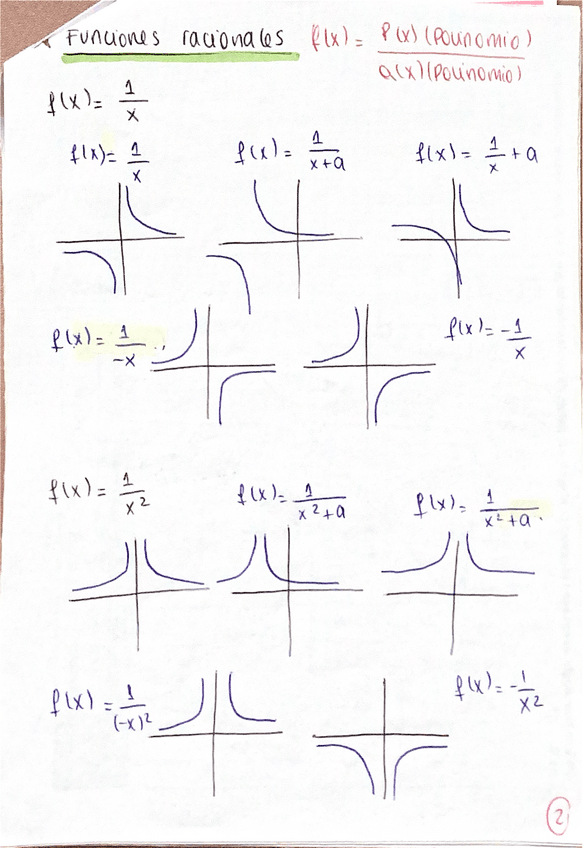 * Funciones racionales f(x) = P(x) (Polinomio) / Q(x) (Polinomio)
f(x) = 1/x
f(x) = 1/x f(x) = 1/x+a f(x) = 1/x + a
f(x) = 1/-x f(x) = -1/x
f(x) = 1/x² f(x) = 1/x²+a f(x) = 1/x²+a
f(x) = 1/(-x)² f(x) = -1/x²
2